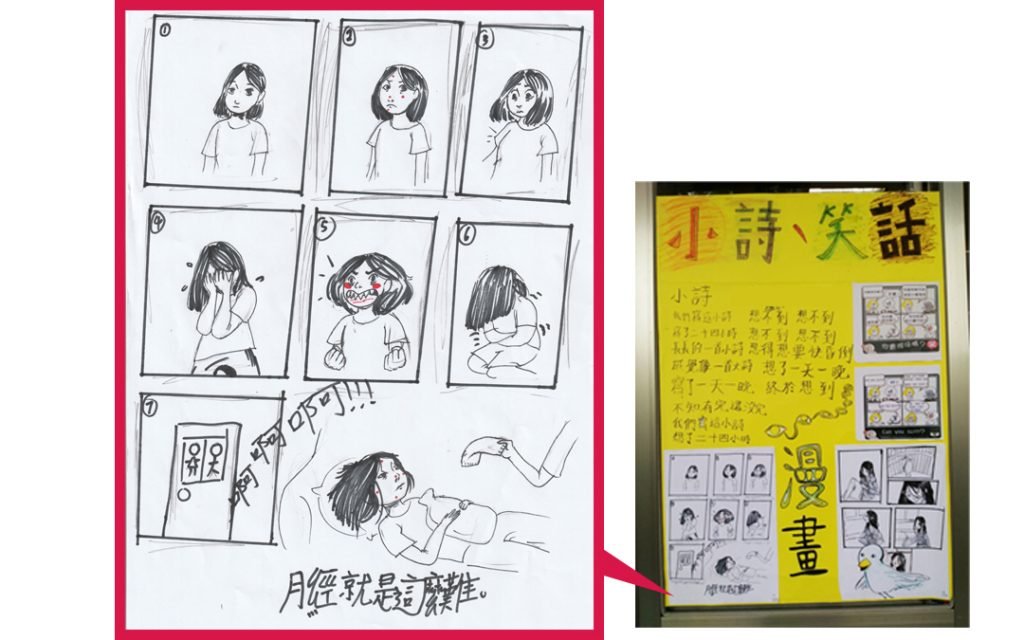 ①
②
③
④
⑤
⑥
⑦
啊啊啊啊!!!
月經就是這麼難。
小詩、笑話
小詩
我們寫這小詩 想不到 想不到
寫了二十四小時 想不到 想不到
長長的一首小詩 想得想要快昏倒
感覺像一首大詩 想了一天一晚
寫了一天一晚 終於想到
不知有完沒完
我們寫這小詩
想了二十四小時
漫畫
月經就是這麼難。